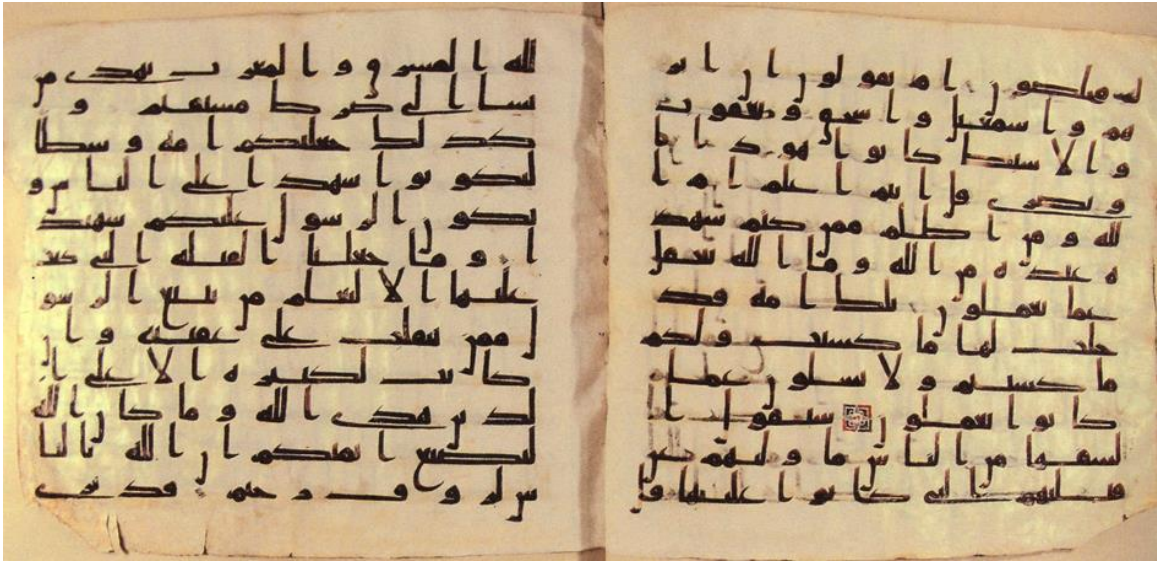 له مخلصون ام تقولون ان ابر
هم و اسمعيل و اسحق و يعقوب
و الاسبط كانوا هودا ا
و نصرى قل اانتم اعلم ام ا
لله و من اظلم ممن كتم شهد
ة عنده من الله و ما الله بغفل
عما تعملون تلك امة قد
خلت لها ما كسبت و لكم
ما كسبتم و لا تسلون عما
كانوا يعملون سيقول ا
لسفها من الناس ما وليهم عن
قبلتهم التى كانوا عليها قل
لله المشرق و المغرب يهدى من
يشا الى صرط مستقيم و
كذلك جعلنكم امة وسطا
لتكونوا شهدا على الناس و
يكون الرسول عليكم شهيد
ا و ما جعلنا القبلة التى كنت
عليها الا لنعلم من يتبع الرسو
ل ممن ينقلب على عقبيه و ان
كانت لكبيرة الا على ا
لذين هدى الله و ما كان الله
ليضيع ايمنكم ان الله بالنا
س لروف رحيم قد نرى